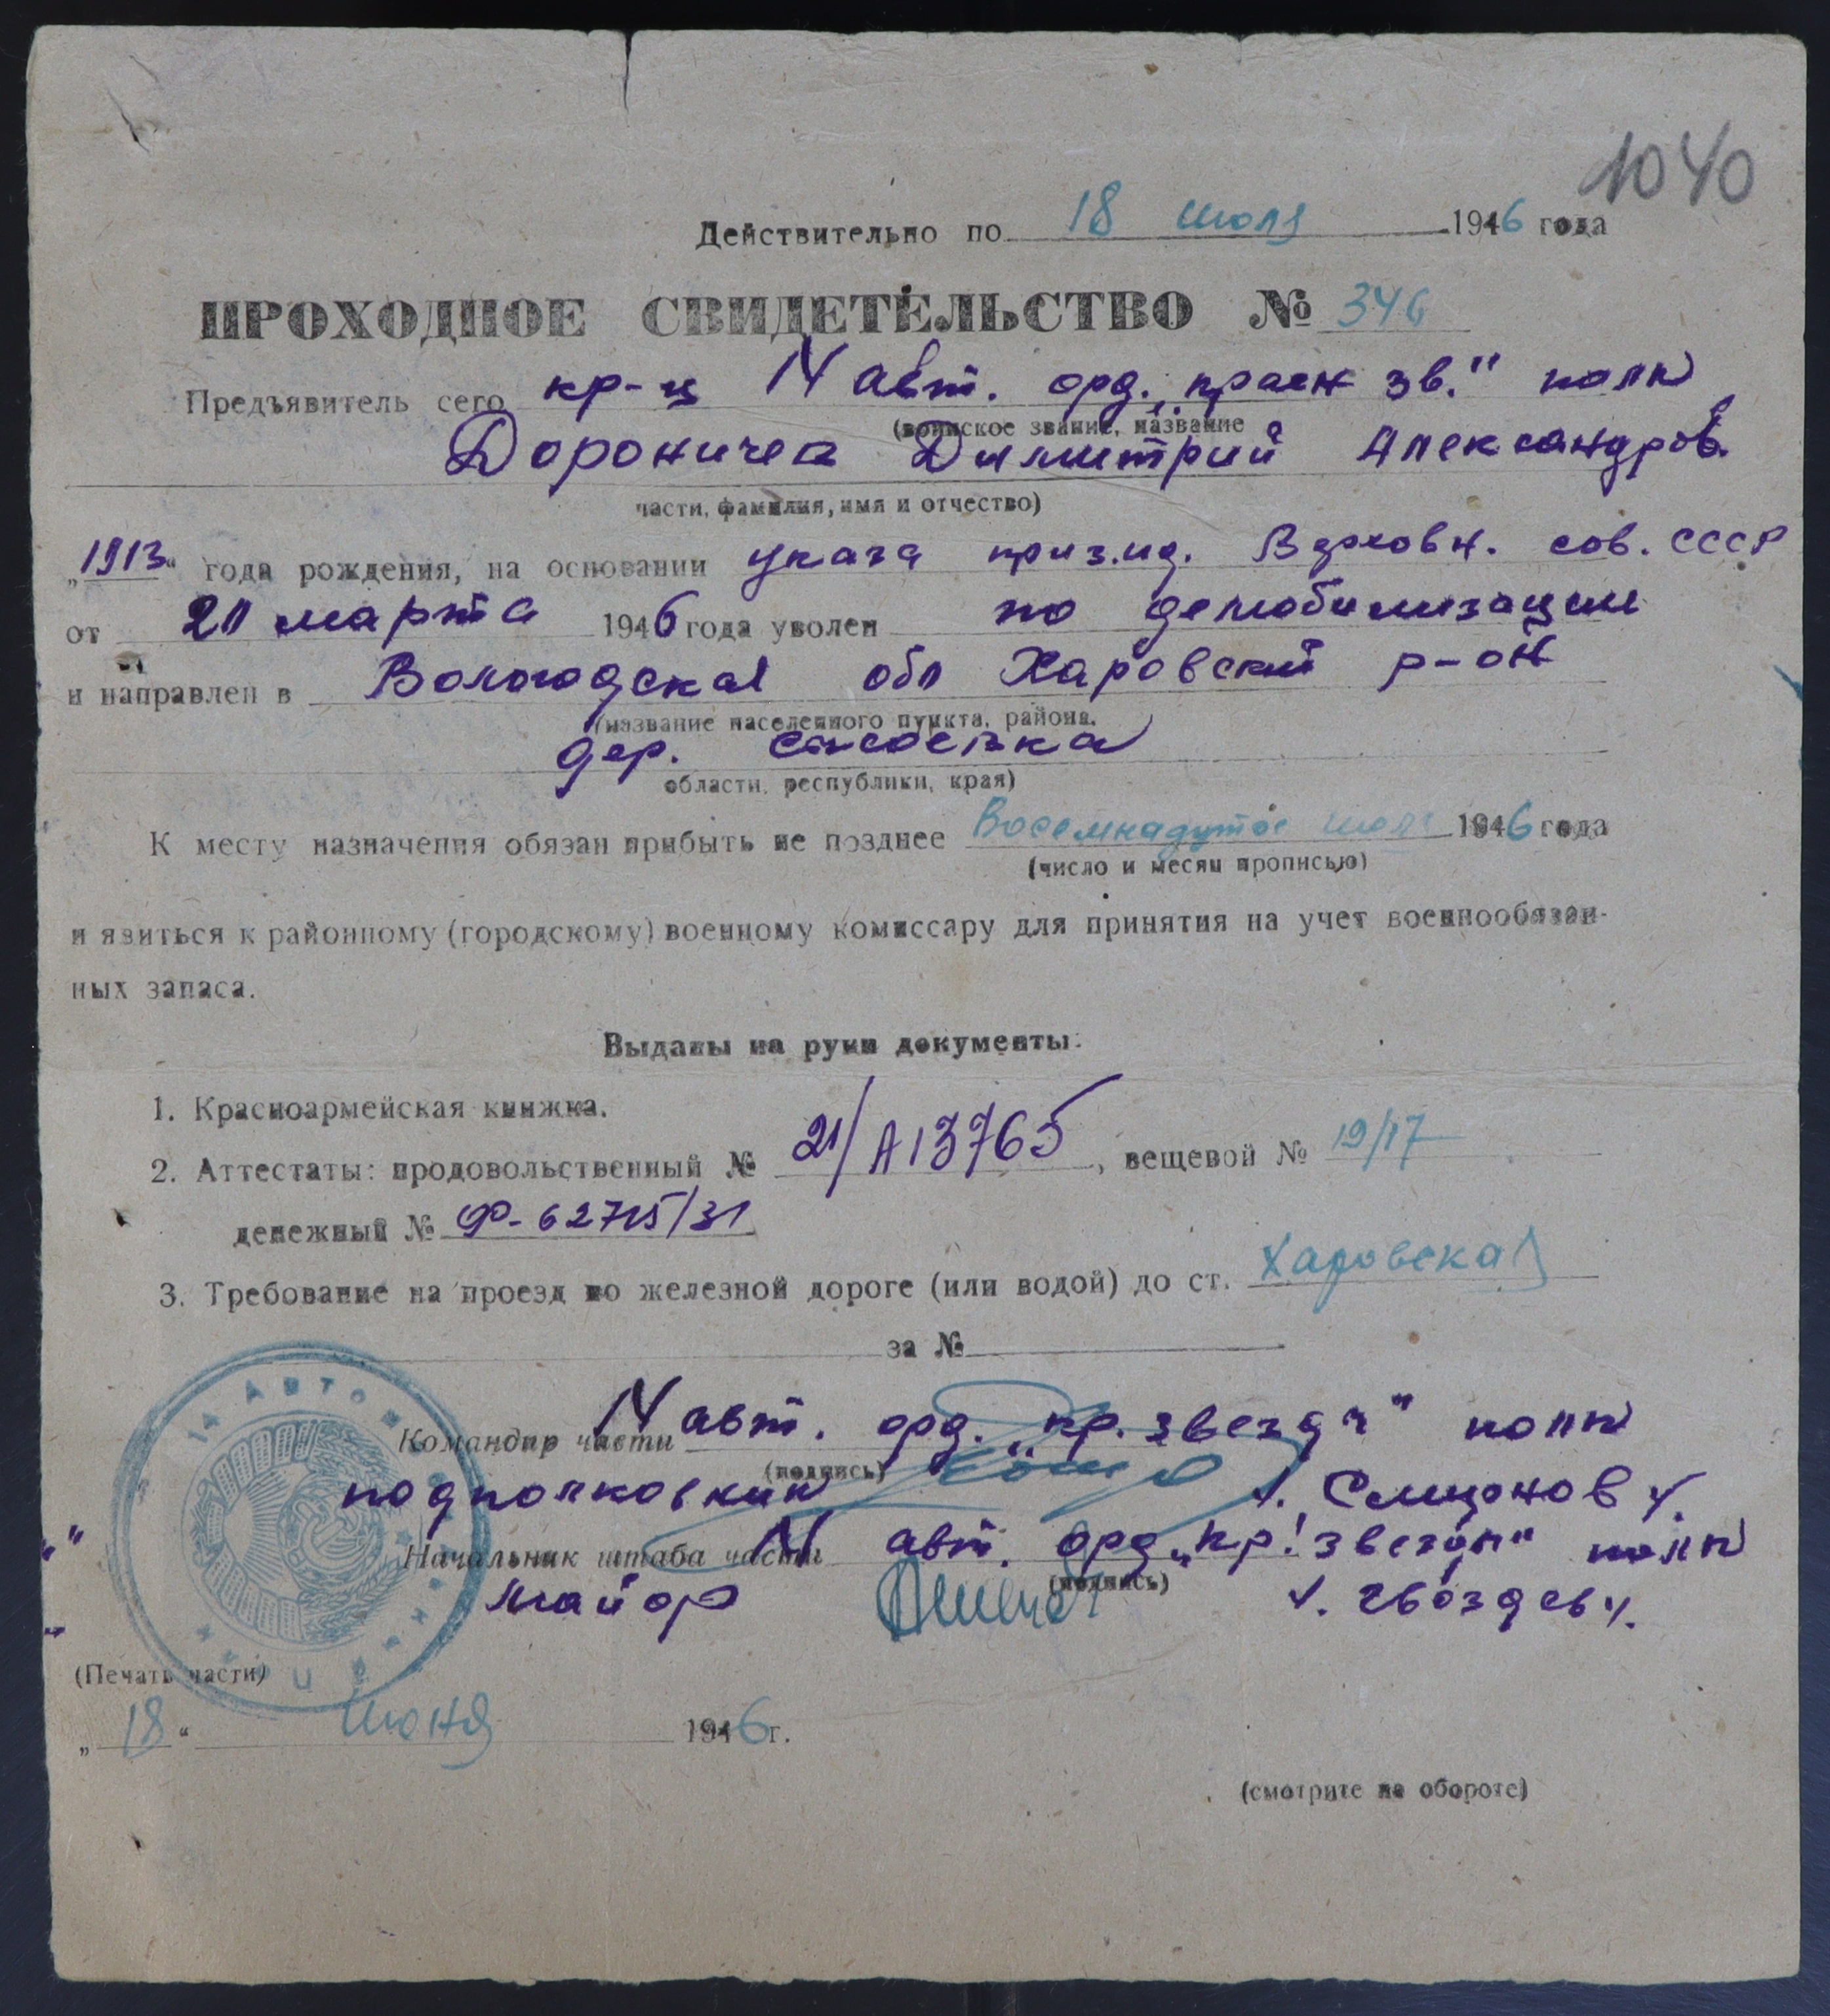 1040
Действительно по 18 июля 1946 года
ПРОХОДНОЕ СВИДЕТЕЛЬСТВО № 346
Предъявитель сего кр-ц 14 авт. орд. „красн зв.“ полк
(воинское звание, название
Дороничев Дмитрий Александров.
части, фамилия, имя и отчество)
„1913“ года рождения, на основании указа през.ид. Верховн. сов. СССР
от 20 марта 1946 года уволен по демобилизации
и направлен в Вологодская обл Харовский р-он
(название населенного пункта, района,
дер.
области, республики, края)
К месту назначения обязан прибыть не позднее Восемнадцтое июля 1946 года
(число и месяц прописью)
и явиться к районному (городскому) военному комиссару для принятия на учет военнообязан-
ных запаса.
Выданы на руки документы:
1. Красноармейская книжка.
2. Аттестаты: продовольственный № 21/А13765, вещевой № 19/17
денежный № Ф-62715/31
3. Требование на проезд по железной дороге (или водой) до ст. Харовская
за №
14 АВТОМ
Командир части 14 авт. орд. „кр. звезды“ полк
(подпись)
подполковник /. Симонов /.
Начальник штаба части 14 авт. орд „кр. звезды“ полк
(подпись)
майор /. Гвоздев /.
(Печать части)
„18“ июня 1946 г.
(смотрите на обороте)